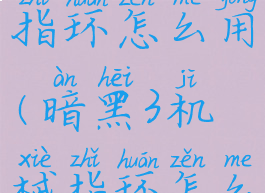 zhǐ huán zěn me yòng
指环怎么用
àn hēi jī
(暗黑3机
xiè zhǐ huán zěn me
械指环怎么